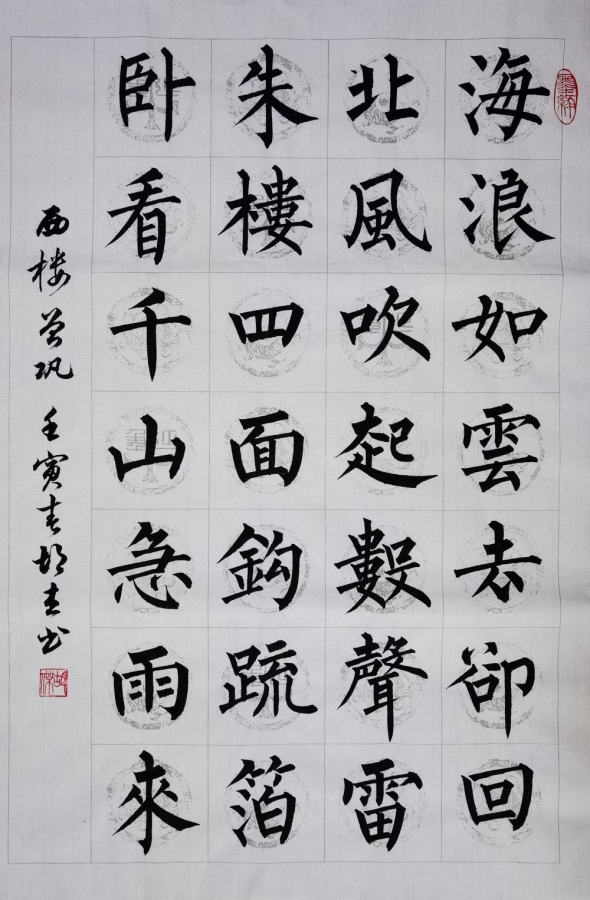 海浪如雲去卻回
北風吹起數聲雷
朱樓四面鈎疏箔
卧看千山急雨來
西楼 曾巩 壬寅春胡杰书
胡傑